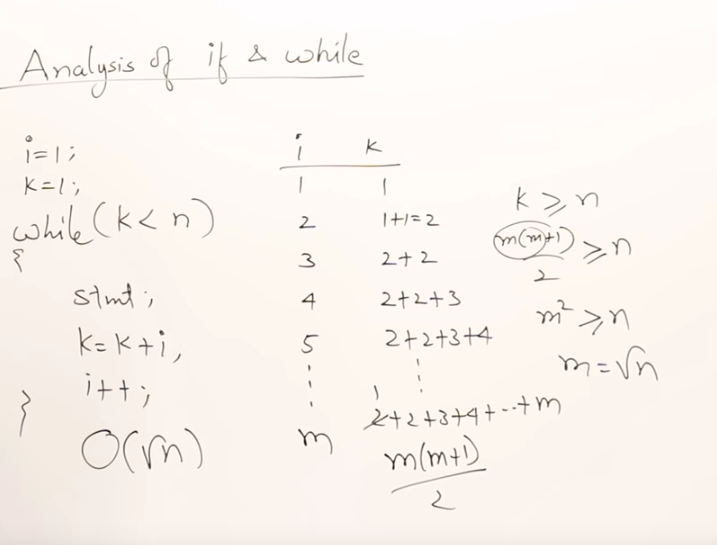 Analysis of if & while
i=1;
k=1;
while(k<n)
{
stmt;
k=k+i,
i++;
}
O(√n)
i k
1 1
2 1+1=2
3 2+2
4 2+2+3
5 2+2+3+4
m 2+2+3+4+--+m
1
m(m+1)
2
k≥n
m(m+1) ≥n
2
m²≥n
m=√n